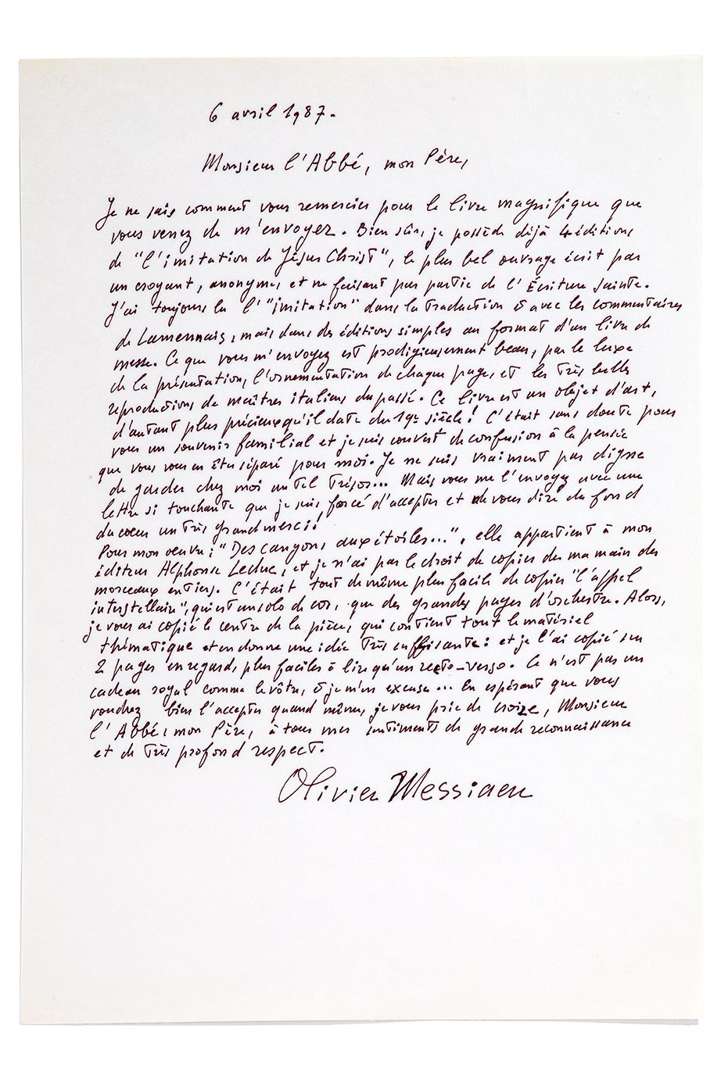 6 avril 1987.
Monsieur l'Abbé, mon Père,
Je ne sais comment vous remercier pour le livre magnifique que
vous venez de m'envoyer. Bien sûr, je possède déjà 4 éditions
de "l'imitation de Jésus Christ", le plus bel ouvrage écrit par
un croyant, anonyme, et ne faisant pas partie de l'Écriture Sainte.
J'ai toujours lu l'"imitation" dans la traduction & avec les commentaires
de Lamennais, mais dans des éditions simples au format d'un livre de
messe. Ce que vous m'envoyez est prodigieusement beau, par le luxe
de la présentation, l'ornementation de chaque page, et les très belles
reproductions de maîtres italiens du passé. Ce livre est un objet d'art,
d'autant plus précieux qu'il date du 19e siècle! C'était sans doute pour
vous un souvenir familial et je suis couvert de confusion à la pensée
que vous vous en êtes séparé pour moi. Je ne suis vraiment pas digne
de garder chez moi un tel trésor... Mais vous me l'envoyez avec une
lettre si touchante que je suis forcé d'accepter et de vous dire du fond
du cœur un très grand merci!
Pour mon œuvre: "Des canyons aux étoiles...", elle appartient à mon
éditeur Alphonse Leduc, et je n'ai pas le droit de copier de ma main des
morceaux entiers. C'était tout de même plus facile de copier "l'appel
interstellaire", qui est un solo de cor, que des grandes pages d'orchestre. Alors,
je vous ai copié le centre de la pièce, qui contient tout le matériel
thématique et en donne une idée très suffisante: et je l'ai copié sur
2 pages en regard, plus faciles à lire qu'un recto-verso. Ce n'est pas un
cadeau royal comme le vôtre, & je m'en excuse... En espérant que vous
voudrez bien l'accepter quand même, je vous prie de croire, Monsieur
l'Abbé, mon Père, à tous mes sentiments de grande reconnaissance
et de très profond respect.
Olivier Messiaen